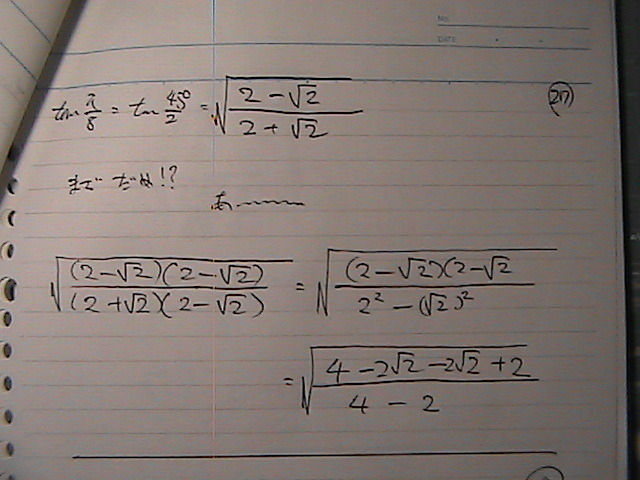 No.
DATE
tan π/8 = tan 45°/2 = √((2 - √2)/(2 + √2))
まで だめ!?
あ〰
√(((2-√2)(2-√2))/((2+√2)(2-√2))) = √(((2-√2)(2-√2)/(2² - (√2)²))
= √((4 - 2√2 - 2√2 + 2)/(4 - 2))